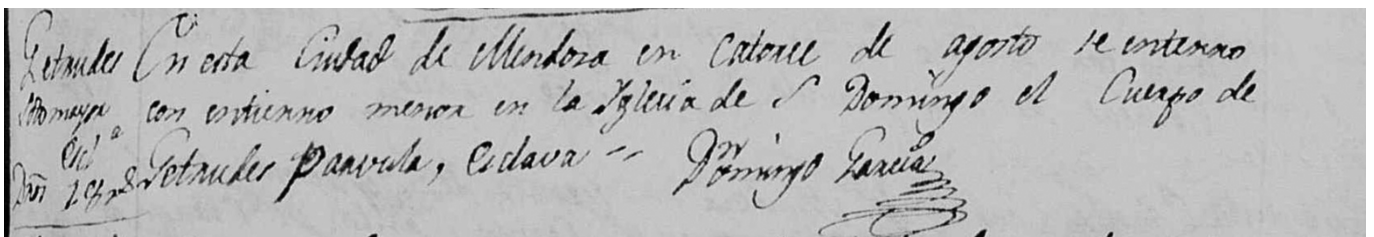 Getrudes
Sotomayor
Escl.ª
En esta Ciudad de Mendoza en catorce de agosto se enterro
con entierro menor en la Iglesia de S Domingo el Cuerpo de
Getrudes Parvula, esclava --
Domingo Garcia